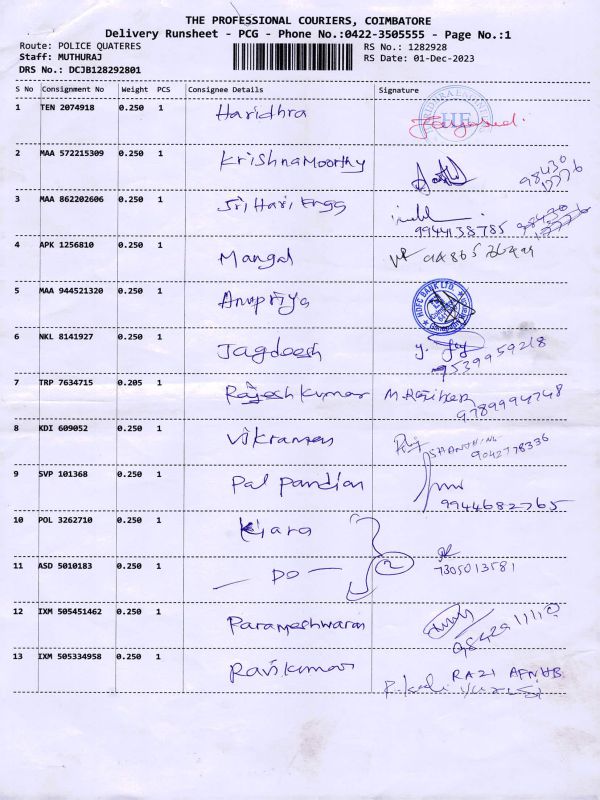 THE PROFESSIONAL COURIERS, COIMBATORE
Delivery Runsheet - PCG - Phone No.:0422-3505555 - Page No.:1
Route: POLICE QUATERES RS No.: 1282928
Staff: MUTHURAJ RS Date: 01-Dec-2023
DRS No.: DCJB128292801
S No Consignment No Weight PCS Consignee Details Signature
1 TEN 2074918 0.250 1 Haridhra
HE
2 MAA 572215309 0.250 1 Krishnamoorthy
98430
3 MAA 862202606 0.250 1 Sri Hari Engg
9944138785
4 APK 1256810 0.250 1 Mangal
5 MAA 944521320 0.250 1 Anupriya
HDFC BANK LTD.
6 NKL 8141927 0.250 1 Jagdeesh
9539959218
7 TRP 7634715 0.205 1 Rajesh Kumar
9789994748
8 KDI 609052 0.250 1
9042778336
9 SVP 101368 0.250 1 Pal Pandian
9944682765
10 POL 3262710 0.250 1 Kiara
11 ASD 5010183 0.250 1 — DO — 2
7305013581
12 IXM 505451462 0.250 1 Parameshwaran
13 IXM 505334958 0.250 1 Ravikumar